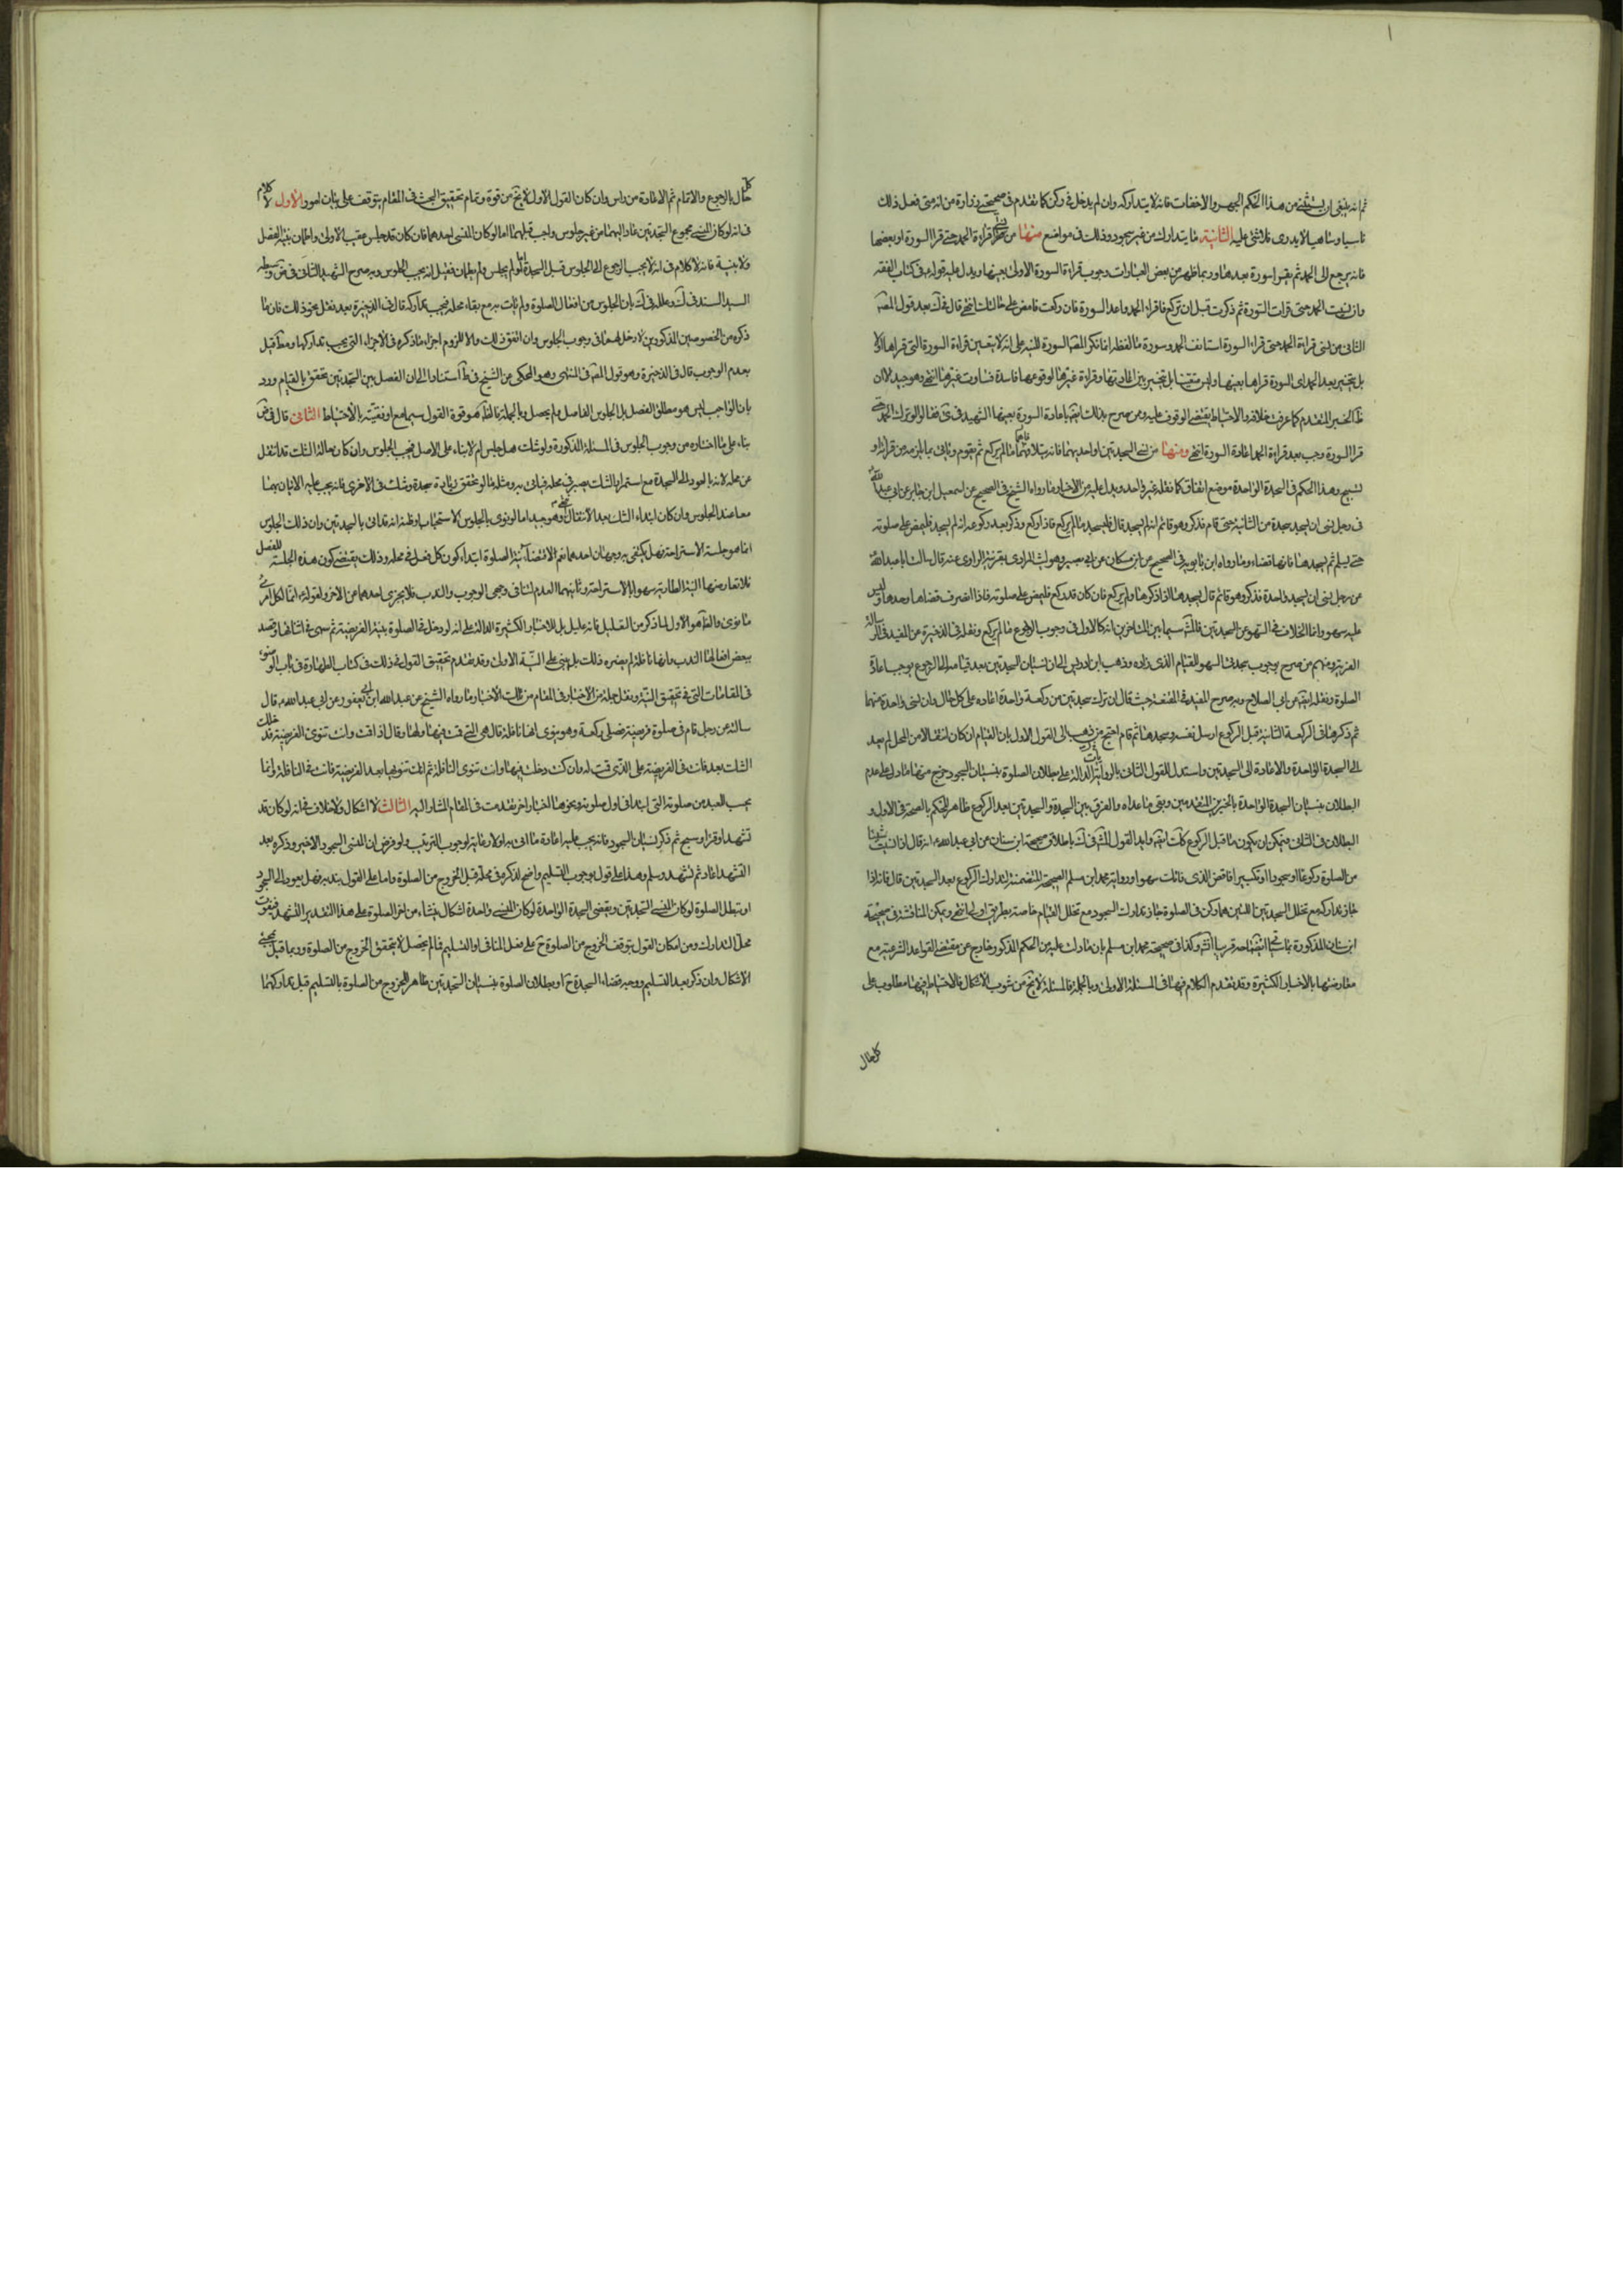 ثم انه ينبغي ان يستثنى من هذا الحكم الجهر والاخفات فانه لا يتداركه وان لم يدخل في ركن كما تقدم في صحيحتي زرارة من انه متى فعل ذلك
ناسيا او ساهيا او لا يدرى فلا شئ عليه الثانية ما يتدارك من غير سجود وذلك في مواضع منها من نسى قراءة الحمد حتى قرا السورة او بعضها
فانه يرجع الى الحمد ثم يقرا سورة بعدها وربما ظهر من بعض العبارات وجوب قراءة السورة الاولى بعينها ويدل عليه قوله في كتاب الفقه
وان نسيت الحمد حتى قرات السورة ثم ذكرت قبل ان تركع فاقرا الحمد واعد السورة فان ركعت فامض على حالتك انتهى قال في ك بعد قول المص
الثاني من نسى قراءة الحمد حتى قراء السورة استانف الحمد وسورة ما لفظه انما نكر المص السورة للتنبيه على انه لا يتعين قراءة السورة التي قراها اولا
بل يتخير بعد الحمد اى السورة
قرا السورة وجب بعد قراءة الحمد اعادة السورة انتهى ومنها من نسى السجدتين او احديهما فانه يتلافيهما ما لم يركع ثم يقوم وياتى بما يلزمه من قراءة او
تسبيح وهذا الحكم في السجدة الواحدة موضع اتفاق كما نقله غير واحد ويدل عليه من الاخبار ما رواه الشيخ في الصحيح عن اسمعيل ابن جابر عن ابي عبد الله
في رجل نسى ان يسجد سجدة من الثانية حتى قام فذكر وهو قائم انه لم يسجد قال فليسجد ما لم يركع فاذا ركع وذكر بعد ركوعه انه لم يسجد فليمض على صلوته
حتى يسلم ثم يسجدها فانها قضاء وما رواه ابن بابويه في الصحيح عن ابن مسكان عن ابي بصير وهو ليث المرادى بقرينة الراوى عنه قال سالت ابا عبد الله
عن رجل نسى ان يسجد واحدة فذكرها وهو قائم قال يسجدها اذا ذكرها ولم يركع فان كان قد ركع فليمض على صلوته فاذا انصرف قضاها وحدها وليس
عليه سهو وانما الخلاف في السهو عن السجدتين فالمش سيما بين المتاخرين انه كالاول في وجوب الرجوع ما لم يركع ونقله في الذخيرة عن المفيد في الرسالة
الصلوة ونقله ايضا عن ابي الصلاح وبه صرح المفيد في المقنعة حيث قال ان ترك سجدتين من ركعة واحدة اعاد على كل حال وان نسى واحدة منهما
ثم ذكرها في الركعة الثانية قبل الركوع ارسل نفسه وسجدها ثم قام احتج من ذهب الى القول الاول بان القيام ان كان انتقالا من المحل لم يعد
الى السجدة الواحدة والا عاد الى السجدتين واستدل للقول الثاني بالروايات الدالة على بطلان الصلوة بنسيان السجود خرج منها ما دل على عدم
البطلان بنسيان السجدة الواحدة بالخبرين المتقدمين وبقى ما عداه والفرق بين السجدة والسجدتين بعد الركوع ظاهر للحكم بالصحة في الاول و
البطلان في الثاني ويمكن ان يكون ما قبل الركوع كك ايضا وايد القول المش في ك باطلاق صحيحة ابن سنان عن ابي عبد الله ع انه قال اذا نسيت شيئا
من الصلوة ركوعا او سجودا او تكبيرا فاقض الذى فاتك سهوا ورواية محمد ابن مسلم الصحيحة المتضمنة لتدارك الركوع بعد السجدتين قال فانه اذا
جاز تداركه مع تخلل السجدتين اللتين هما ركن في الصلوة جاز تدارك السجود مع تخلل القيام خاصة بطريق اولى انتهى ويمكن المناقشة في صحيحة
ابن سنان المذكورة بما سياتي ايضاحه قريبا انش وكذا في صحيحة محمد ابن مسلم بان ما دلت عليه من الحكم المذكور خارج عن مقتضى القواعد الشرعية مع
معارضتها بالاخبار الكثيرة وقد تقدم الكلام فيها في المسئلة الاولى وبالجملة فالمسئلة لا تخ من شوب الاشكال فالاحتياط فيها مطلوب على
كل حال
كل حال بالرجوع والاتمام ثم الاعادة من راس وان كان القول الاول لا يخ من قوة وتمام تحقيق البحث في المقام يتوقف على بيان امور الاول لا كلام
في انه لو كان المنسى مجموع السجدتين عاد اليهما من غير جلوس واجب قبلهما اما لو كان المنسى احدهما فان كان قد جلس عقيب الاولى واطمان بنية الفصل
ولا بنية فانه لا كلام في انه لا يجب الرجوع الى الجلوس قبل السجدة واما لو لم يجلس ولم يطمان فقيل انه يجب الجلوس وبه صرح الشهيد الثاني في ض
السيد السند في ك وعلله في ك بان الجلوس من افعال الصلوة ولم يات به مع بقاء محله فيجب تداركه قال في الذخيرة بعد نقل نحو ذلك فان ما
بعدم الوجوب قال في الذخيرة وهو قول المص في المنتهى وهو المحكى عن الشيخ في ط استنادا الى ان الفصل بين السجدتين تحقق بالقيام ورد
بان الواجب ليس هو مطلق الفصل بل الجلوس الفاصل ولم يحصل وبالجملة فالظ هو قوة القول سيما مع اوفقيته بالاحتياط الثاني قال في ض
بناء على ما اختاره من وجوب الجلوس في المسئلة المذكورة ولو شك هل جلس ام لا بناء على الاصل فيجب الجلوس وان كان حالة الشك قد انتقل
عن محله لانه بالعود الى السجدة مع استمرار الشك يصير في محله فياتي به ومثله ما لو تحقق نسيان سجدة وشك في الاخرى فانه يجب عليه الاتيان بهما
معا عند الجلوس وان كان ابتداء الشك بعد الانتقال انتهى وهو جيد اما لو نوى بالجلوس الاستحباب وظنه انه قد اتى بالسجدتين وان ذلك الجلوس
انما هو جلسة الاستراحة فهل يكتفى به وجهان احدهما نعم لاقتضاء نية الصلوة ابتداء كون كل فعل في محله وذلك يقتضى كون هذه الجلسة للفصل
فلا تعارضها النية الطارية سهوا بالاستراحة وثانيهما العدم لتنافى وجهى الوجوب والندب فلا يجزى احدهما عن الاخر ولقوله ع انما لكل امرئ
ما نوى والظ هو الاول لما ذكر من التعليل فانه عليل بل للاخبار الكثيرة الدالة على انه لو دخل في الصلوة بنية الفريضة ثم سهى في اثنائها وقصد
ببعض افعالها الندب فانها نافلة لم يضره ذلك بل يبنى على النية الاولى وقد تقدم تحقيق القول في ذلك في كتاب الطهارة في باب الوضوء
في المقامات التي في تحقيق النية ونقل جملة من الاخبار في المقام من تلك الاخبار ما رواه الشيخ عن عبد الله ابن ابي يعفور عن ابي عبد الله ع قال
سالته عن رجل قام في صلوة فريضة فصلى ركعة وهو ينوى انها نافلة قال هى التي قمت فيها ولها وقال اذا قمت وانت تنوى الفريضة فدخلك
الشك بعد فانت في الفريضة على الذى قمت له وان كنت دخلت فيها وانت تنوى النافلة ثم انك تنويها بعد الفريضة فانت في النافلة وانما
يحسب للعبد من صلوته التي ابتدا في اول صلوته ونحوها اخبار اخر تقدمت في المقام المشار اليه الثالث لا اشكال ولا خلاف في انه لو كان قد
تشهد او قرا وسبح ثم ذكر نسيان السجود فانه يجب عليه اعادة ما اتى به اولا رعاية لوجوب الترتيب ولو فرض ان المنسى السجود الاخير وذكره بعد
التشهد اعاد ثم تشهد وسلم وهذا على قول بوجوب التسليم واضح لذكره في محله قبل الخروج من الصلوة واما على القول بندبه فهل يعود الى السجود
او تبطل الصلوة لو كان المنسى السجدتين ويقضى السجدة الواحدة لو كان المنسى واحدة اشكال ينشاء من اخر الصلوة على هذا التقدير التشهد فيفوت
محل التدارك ومن امكان القول بتوقف الخروج من الصلوة ح على فعل المنافى او التسليم فما لم يحصل لا يتحقق الخروج من الصلوة وربما قيل بمجئ
الاشكال وان ذكر بعد التسليم ووجه قضاء السجدة ح او بطلان الصلوة بنسيان السجدتين ظاهر للخروج من الصلوة بالتسليم قبل تداركهما